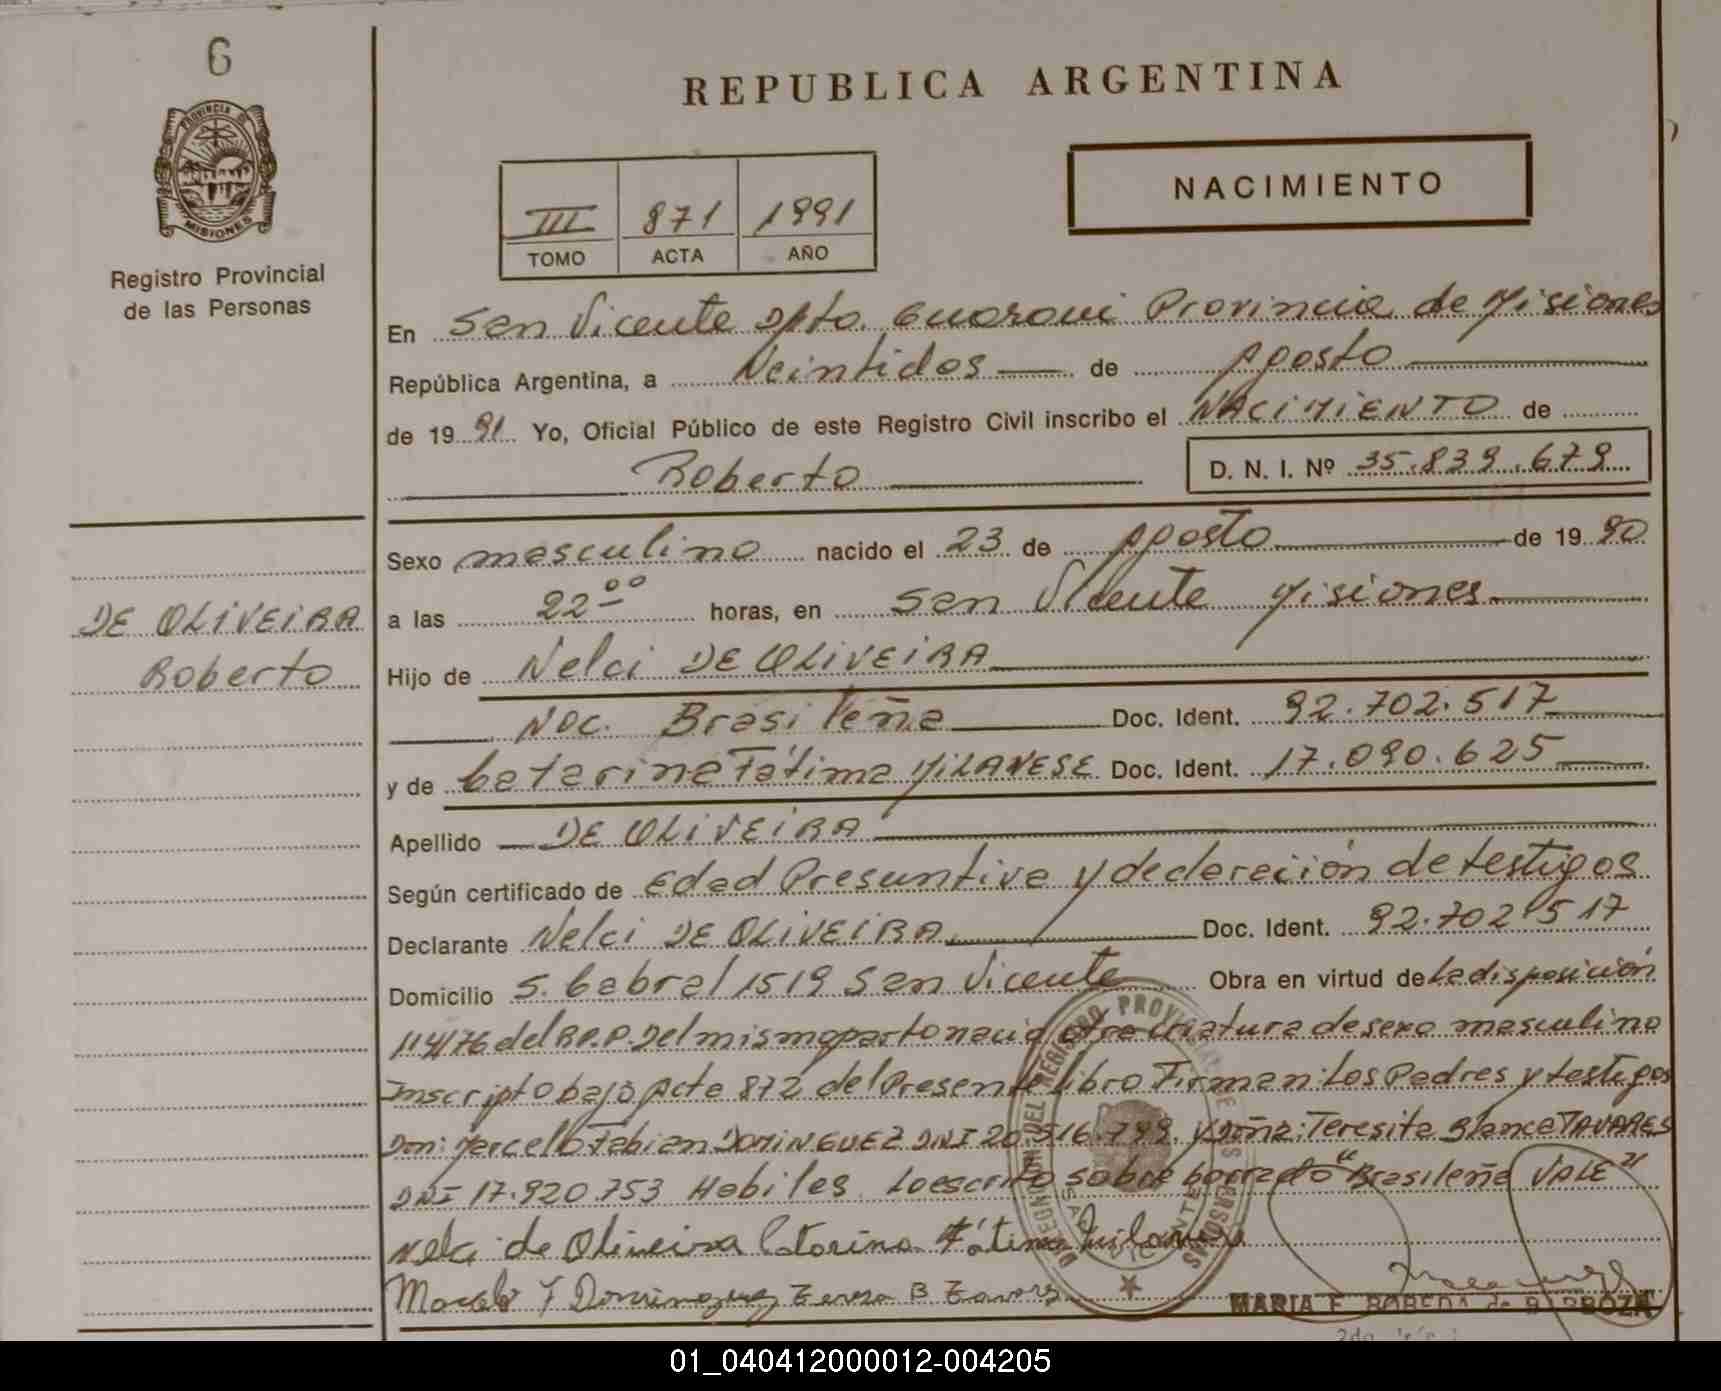 6
PROVINCIA DE
MISIONES
Registro Provincial
de las Personas
REPUBLICA ARGENTINA
NACIMIENTO
III 871 1991
TOMO ACTA AÑO
En San Vicente Dpto. Guarani Provincia de Misiones
República Argentina, a Veintidos de Agosto
de 19 91 Yo, Oficial Público de este Registro Civil inscribo el NACIMIENTO de
Roberto D. N. I. Nº 35.839.679
Sexo masculino nacido el 23 de Agosto de 19 90
a las 22 oo horas, en San Vicente Misiones
DE OLIVEIRA
Roberto
Hijo de Nelci DE OLIVEIRA
Nac. Brasileña Doc. Ident. 92.702.517
y de Catarina Fátima MILANESE Doc. Ident. 17.090.625
Apellido DE OLIVEIRA
Según certificado de Edad Presuntiva y declaración de testigos
Declarante Nelci DE OLIVEIRA Doc. Ident. 92.702.517
Domicilio S. Cabral 1519 San Vicente Obra en virtud de La disposición
114/76 del R.P.P. Del mismo parto nació otra criatura de sexo masculino
Inscripto bajo Acta 872 del Presente Libro Firman: Los Padres y testigos
Don: Marcelo Fabian DOMINGUEZ DNI 20.516.799 y Doña: Teresita Blanca TAVARES
DNI 17.920.753 Habiles. Lo escrito sobre borrado "Brasileña VALE"
Nelci de Oliveira Catarina Fátima Milanese
Marcelo F Dominguez Teresa B Tavares
MARIA E. BOBEDA de BARROZA
01_040412000012-004205